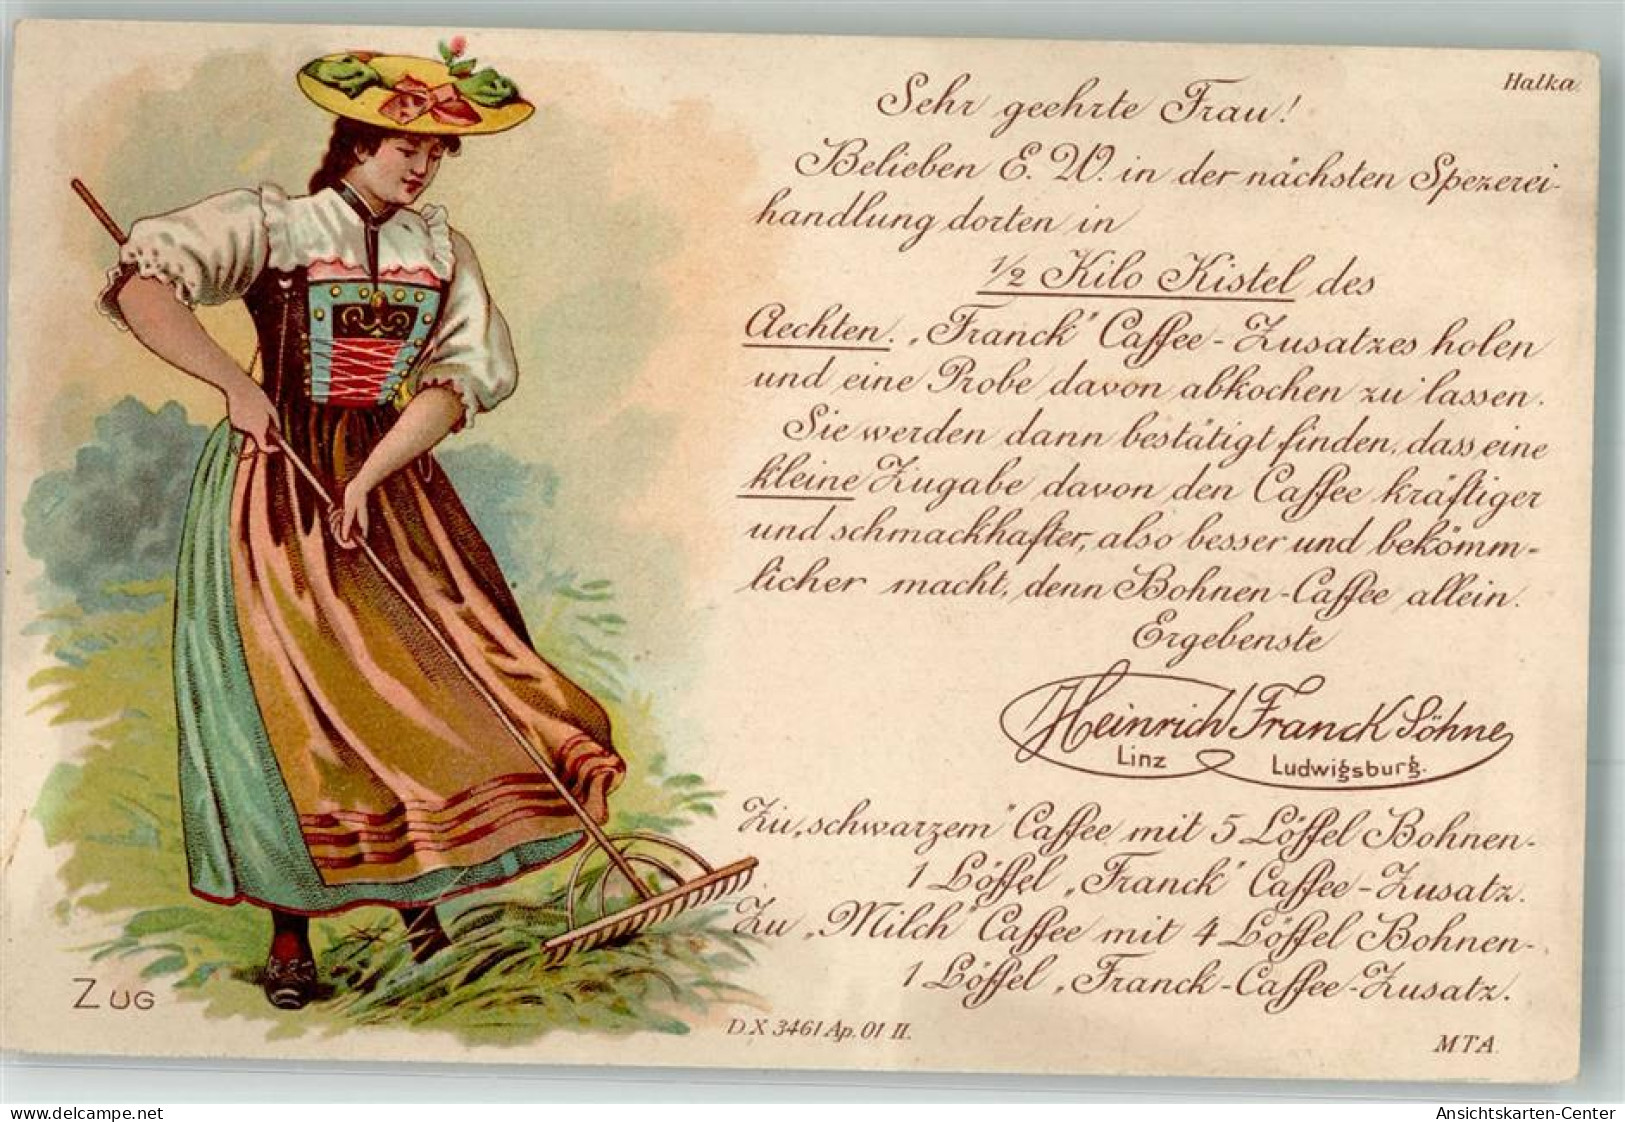 Halka.
Sehr geehrte Frau!
Belieben E. W. in der nächsten Spezerei-
handlung dorten in
1/2 Kilo Kistel des
Aechten „Franck" Caffee-Zusatzes holen
und eine Probe davon abkochen zu lassen.
Sie werden dann bestätigt finden, dass eine
kleine Zugabe davon den Caffee kräftiger
und schmackhafter, also besser und bekömm-
licher macht, denn Bohnen-Caffee allein.
Ergebenste
Heinrich Franck Söhne
Linz Ludwigsburg.
Zu „schwarzem" Caffee mit 5 Löffel Bohnen-
1 Löffel „Franck" Caffee-Zusatz.
Zu „Milch" Caffee mit 4 Löffel Bohnen-
1 Löffel „Franck-Caffee-Zusatz.
ZUG
D.X 3461 Ap. 01 II.
MTA.
www.delcampe.net
Ansichtskarten-Center